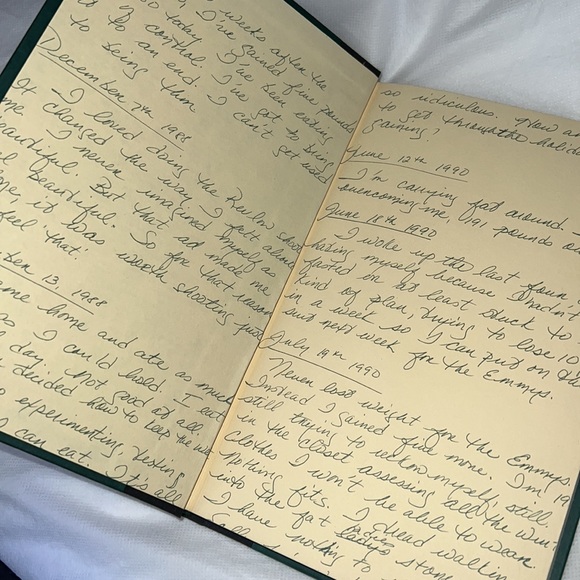 weeks after the
today, I've gained five pounds
to control. I've been eating
an end. I've got to bring
to being thin. I can't get
December 7th 1988
If I loved doing the Revlon shoot
me changed the way I felt about
I never imagined myself as
beautiful. But that ad made me
beautiful. So for that reason
me, it was worth shooting just
feel that.
13, 1988
home and ate as much
as I could hold. I eat
day. Not good at all.
decided how to keep the
experimenting, testing
I can eat. It's all
so ridiculous. How am
to get through the holidays
gaining?
June 12th 1990
I'm carrying fat around
overcoming me, 191 pounds
June 18th 1990
I woke up the last four
hating myself because I hadn't
fasted or at least stuck to
kind of plan, trying to lose 10
in a week so I can put on
suit next week for the Emmys.
July 19th 1990
Never lost weight for the Emmys.
Instead I gained five more. I'm 19
still trying to reckon myself, still
in the closet assessing all the
clothes I won't be able to wear.
Nothing fits. I dread walking
into the fat ladys store
I have nothing to